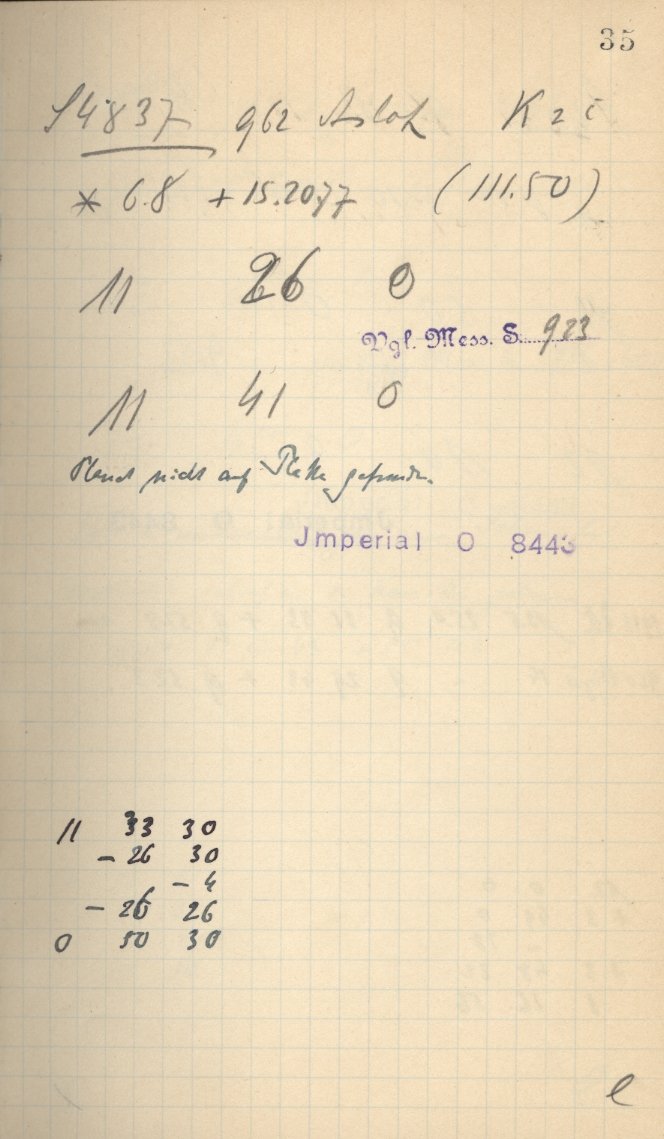 35
14837 962 Aslög K = i
* 6.8 + 15.2077 (111.50)
11 26 0
Vgl. Mess. S. 923
11 41 0
Planet nicht auf Platte gefunden.
Jmperial O 8443
11 33 30
- 26 30
- 4
- 26 26
0 50 30
e